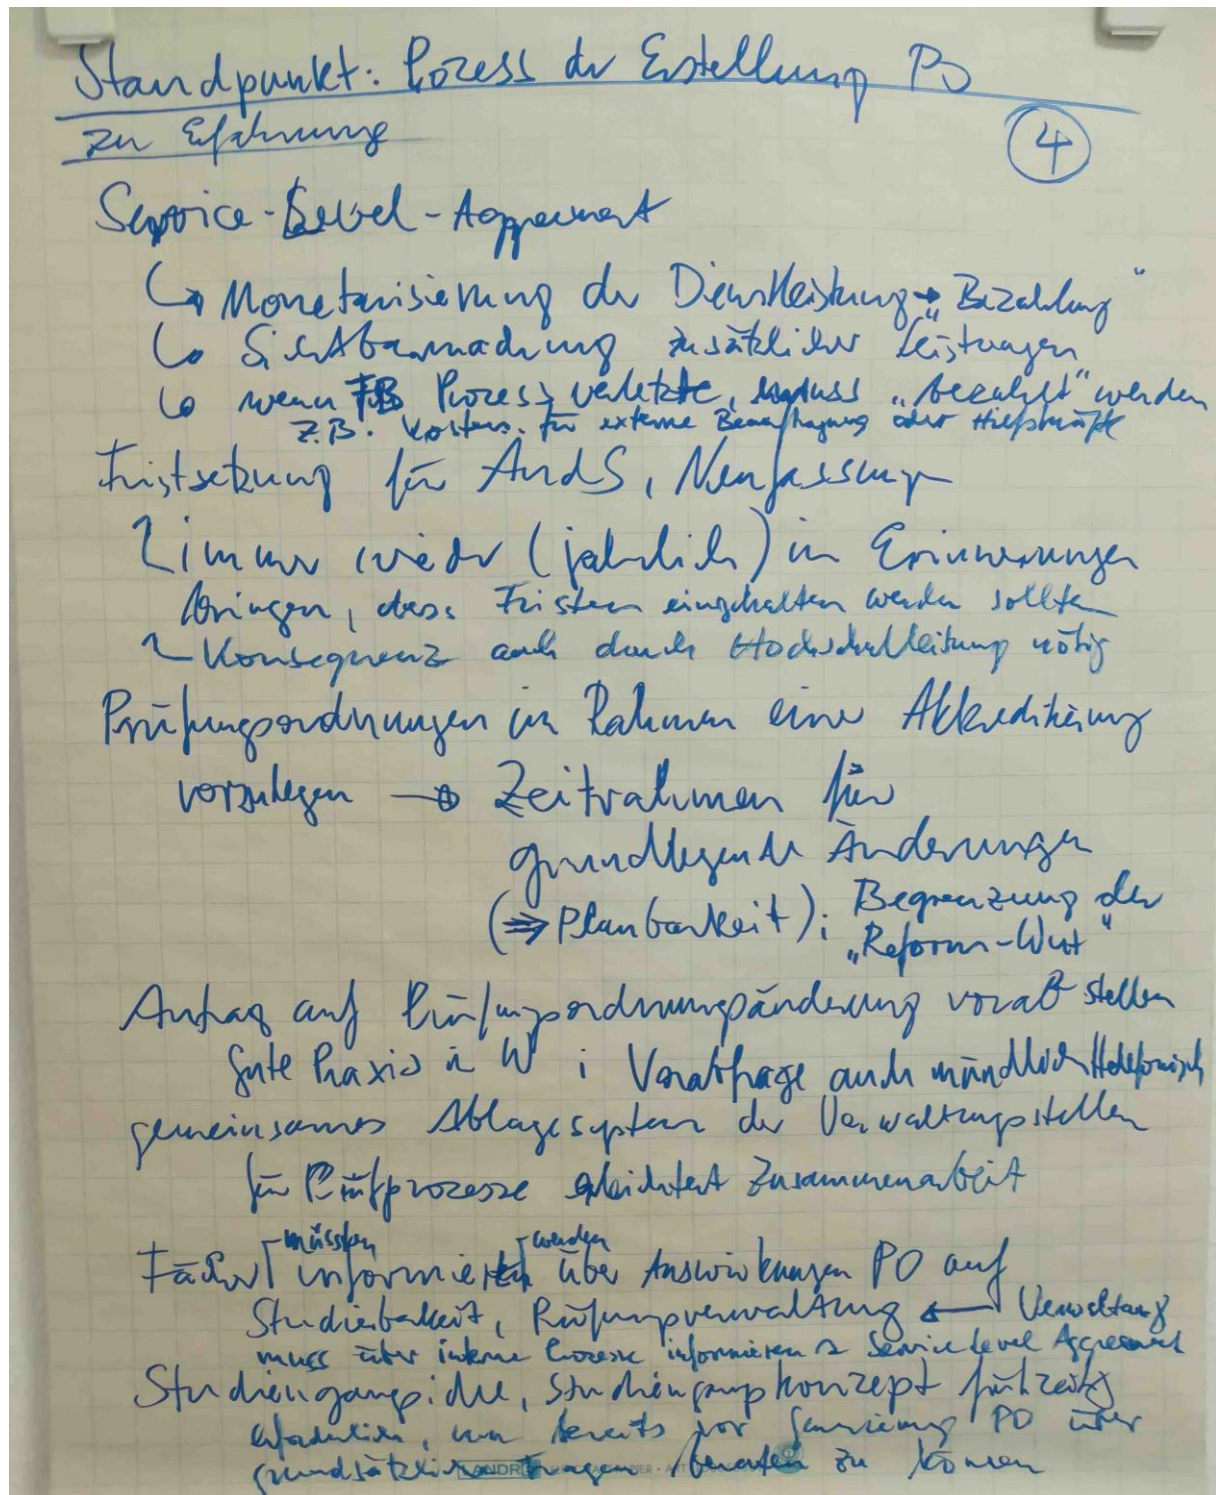 Standpunkt: Prozess der Erstellung PO
zur Erfahrung
4
Service-Level-Aggreement
↳ Monetarisierung der Dienstleistung → „Bezahlung“
↳ Sichtbarmachung zusätzlicher Leistungen
↳ wenn FB Prozess verletzte, muss „bezahlt“ werden
z.B. Kosten für externe Beauftragung oder Hilfskräfte
Fristsetzung für ÄndS, Neufassung
immer wieder (jährlich) in Erinnerungen
bringen, dass Fristen eingehalten werden sollten
Konsequenz auch durch Hochschulleitung nötig
Prüfungsordnungen im Rahmen einer Akkreditierung
vorzulegen → Zeitrahmen für
grundlegende Änderungen
(⇒ Planbarkeit); Begrenzung der
„Reform-Wut“
Antrag auf Prüfungsordnungsänderung vorab stellen
gute Praxis in W ; Vorabfrage auch mündlich/telefonisch
gemeinsames Ablagesystem der Verwaltungsstellen
für Prüfprozesse erleichtert Zusammenarbeit
müssten werden
Fächer informiert über Auswirkungen PO auf
Studierbarkeit, Prüfungsverwaltung ← Verwaltung
muss über interne Prozesse informieren Service Level Aggreement
Studiengangsidee, Studiengangskonzept frühzeitig
erforderlich, um bereits vor PO über
grundsätzliche Fragen beraten zu können
LANDRÉ